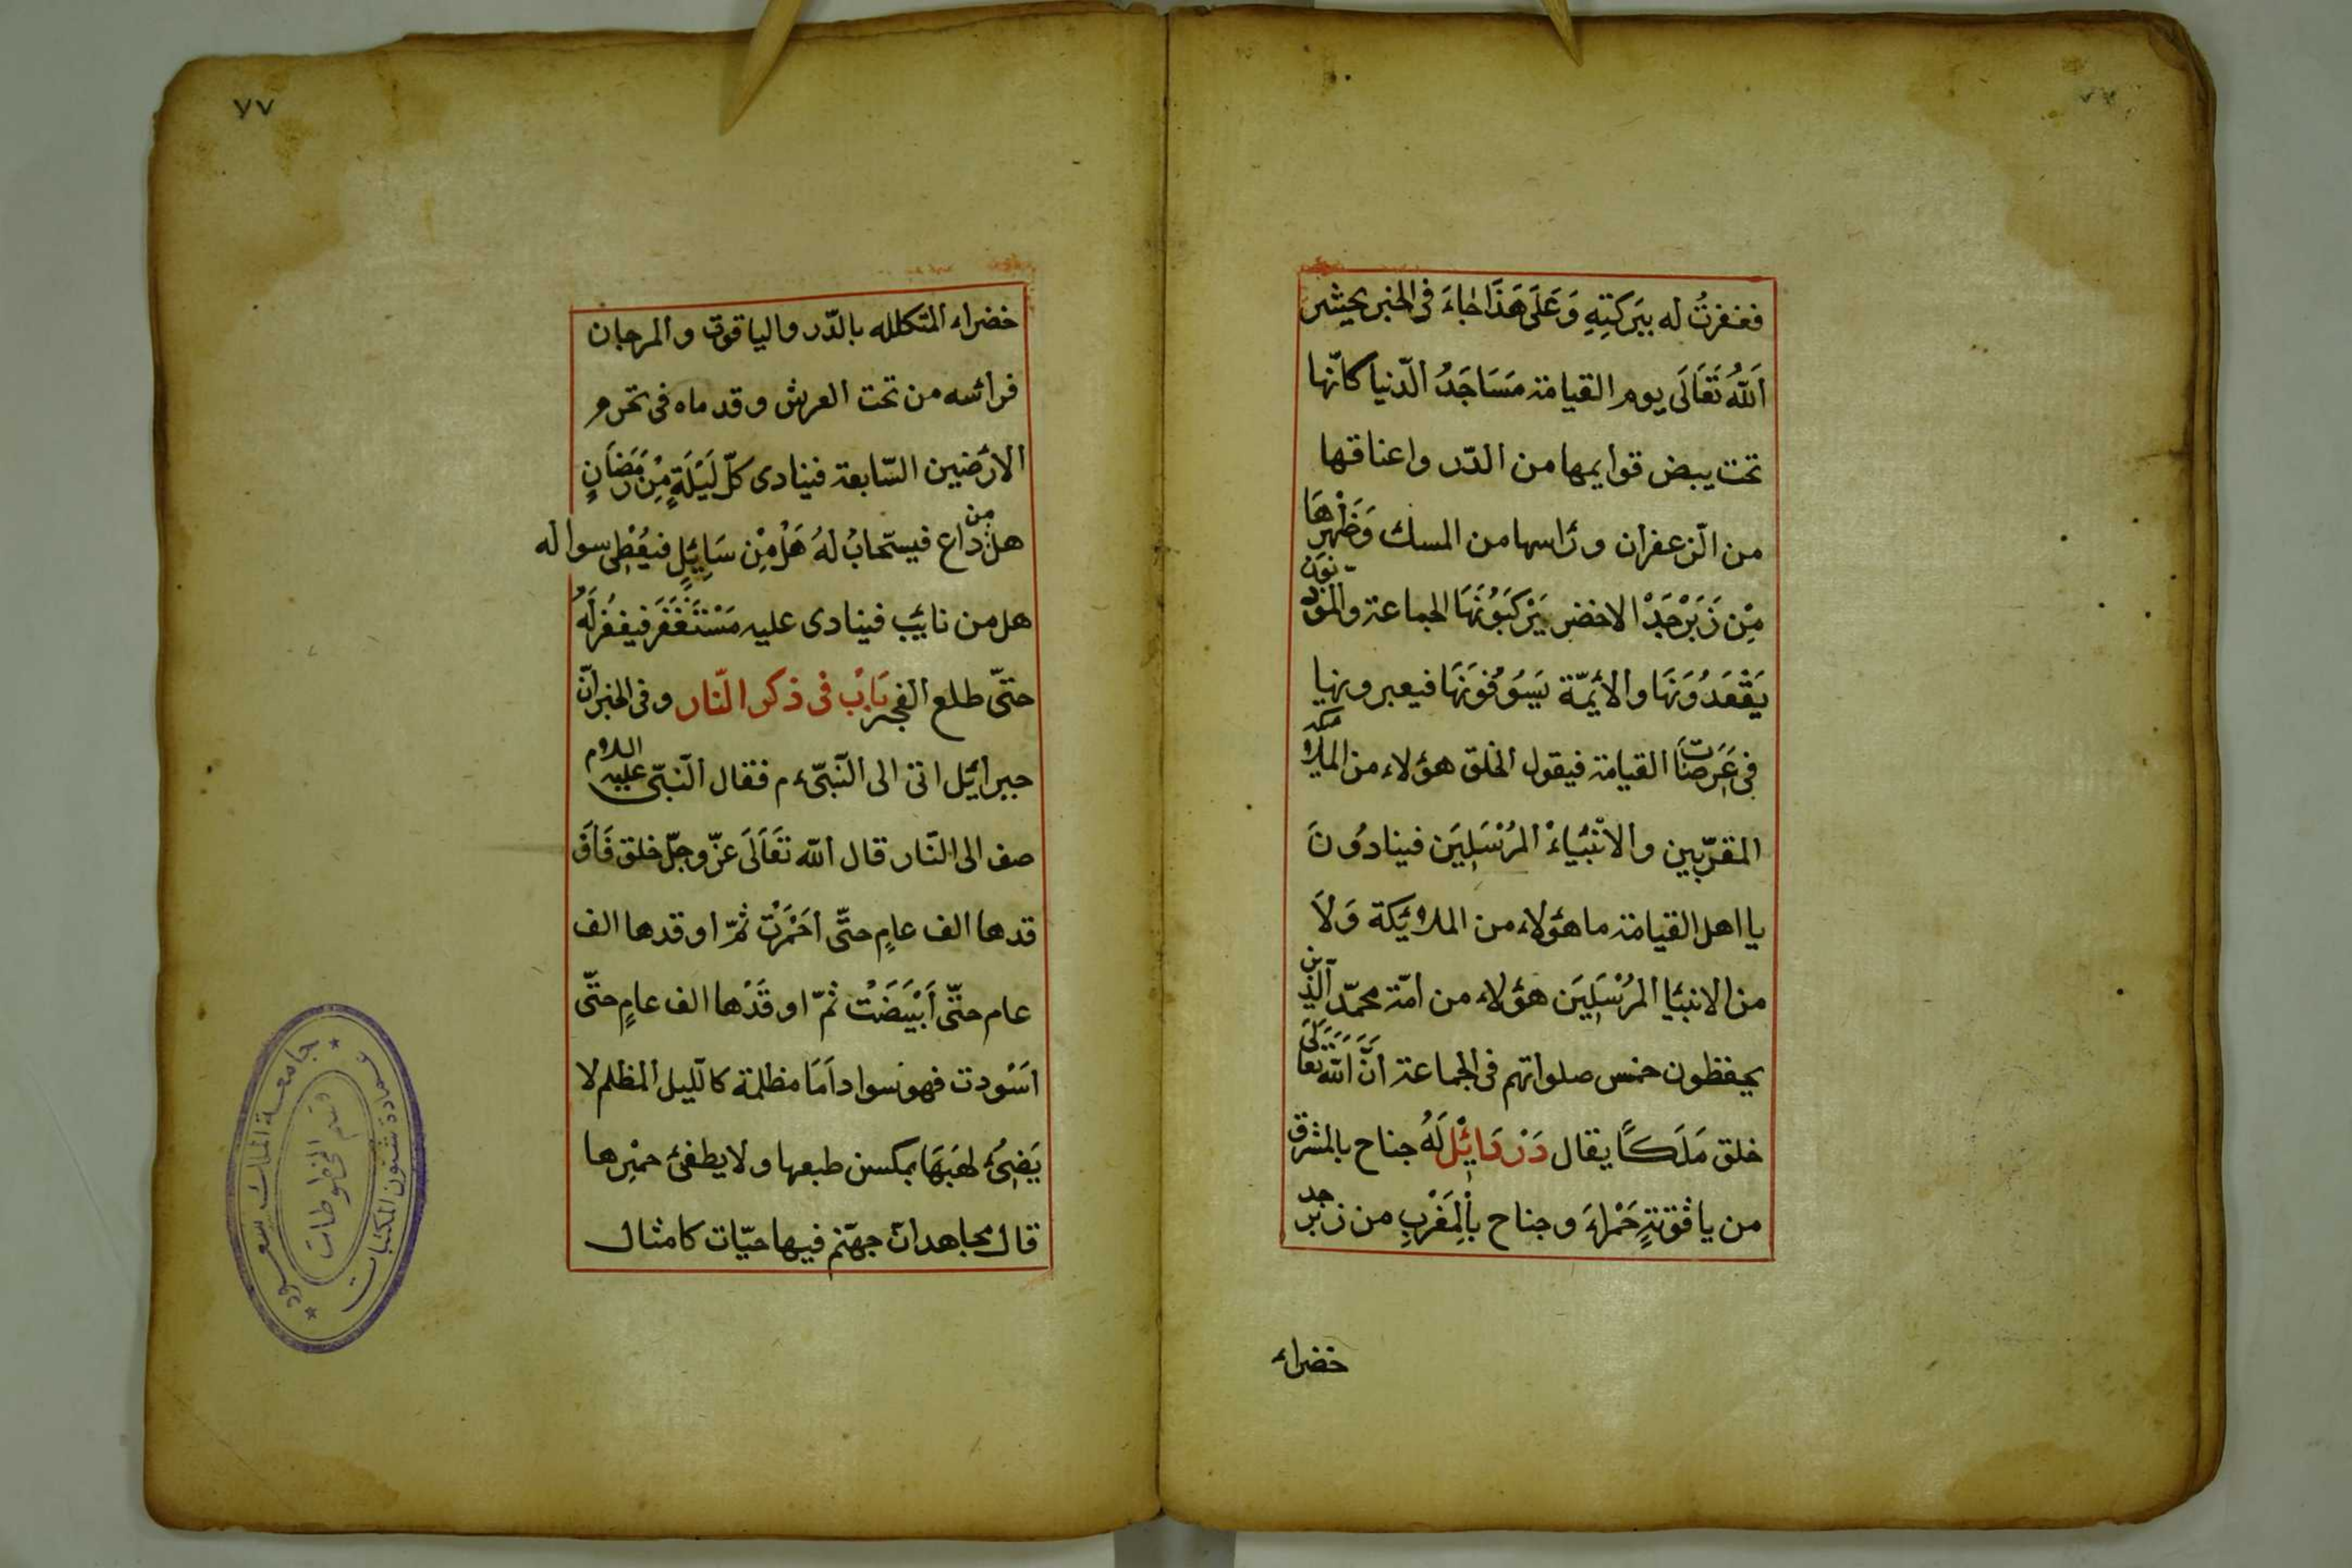 فغفرتُ له ببَركتِهِ وَعَلَى هَذَا جَاءَ في الخبر يحشر
اَللهُ تَعَالَى يوم القيامة مَسَاجَدُ الدّنيا كانّها
تحت يبض قوايمها من الدّر واعناقها
من الزعفران ورَاسها من المسك وَظَهْرِهَا
مِنْ زَبَرْجَدْ الاخضر يَرْكَبُوْنَهَا الجماعة والمؤذنون
يَقْعَدُوْنَهَا والأئمّة يَسُوْقُونَهَا فيعبرونها
في عَرَصَات القيامة فيقول الخلق هؤلاء من الملائكة
المقرّبين والانْبيَاءْ المُرْسَلِيَن فينادُونَ
يا اهل القيامة ما هؤلاء من الملائكة وَلَا
من الانبيا المرُسَلِيَن هؤلاء من امّة محمّد الّذين
يحفظون خمس صلواتهم في الجماعة اَنَّ اَللّهَ تَعَالَى
خلق مَلَكًا يقال دَرْدَايِئلْ لَهُ جناح بالمشرق
من ياقوتةٍ حَمْراءَ وجناح باْلمَغْربِ من زبرجد
خضراء
٧٧
خضراء المتكلله بالدّر والياقوت والمرجان
فرائسه من تحت العرش وقدماه في تخوم
الارَضيين السّابعة فينادى كلّ لَيْلَةٍ مِنْ رَمَضَانٍ
هل من داع فيستحابُ لهُ هَلْ مِنْ سَايِئلٍ فيُعْطِى سواله
هل من تايب فينادى عليه مَسْتَغْفَرَ فيغفرَلَهُ
حتىّ طلع الفجر بَابْ في ذكر النّار وفي الخبر انّ
جبرائيل اتى الى النّبيّ ء م فقال النّبيّ عليه السلام
صف الى النّار قال اللّه تَعَالَى عزّ وجلّ خلق فَاَوْ
قدها الف عامٍ حتّى اَحْمَرَتْ ثمّ اوقدها الف
عام حتىّ اَبْيَضَتْ ثمّ اوقَدْها الف عامٍ حتّى
اسَودت فهو سوادامَا مظلمة كالّليل المظلم لا
يَضِئُ لهَبَهَا بمكسن طبعها ولا يطفئ حمْرِها
قال مجاهد انّ جهنّم فيها حيّات كامثال
جامعة الملك سعود
عمادة شئون المكتبات
قسم المخطوطات